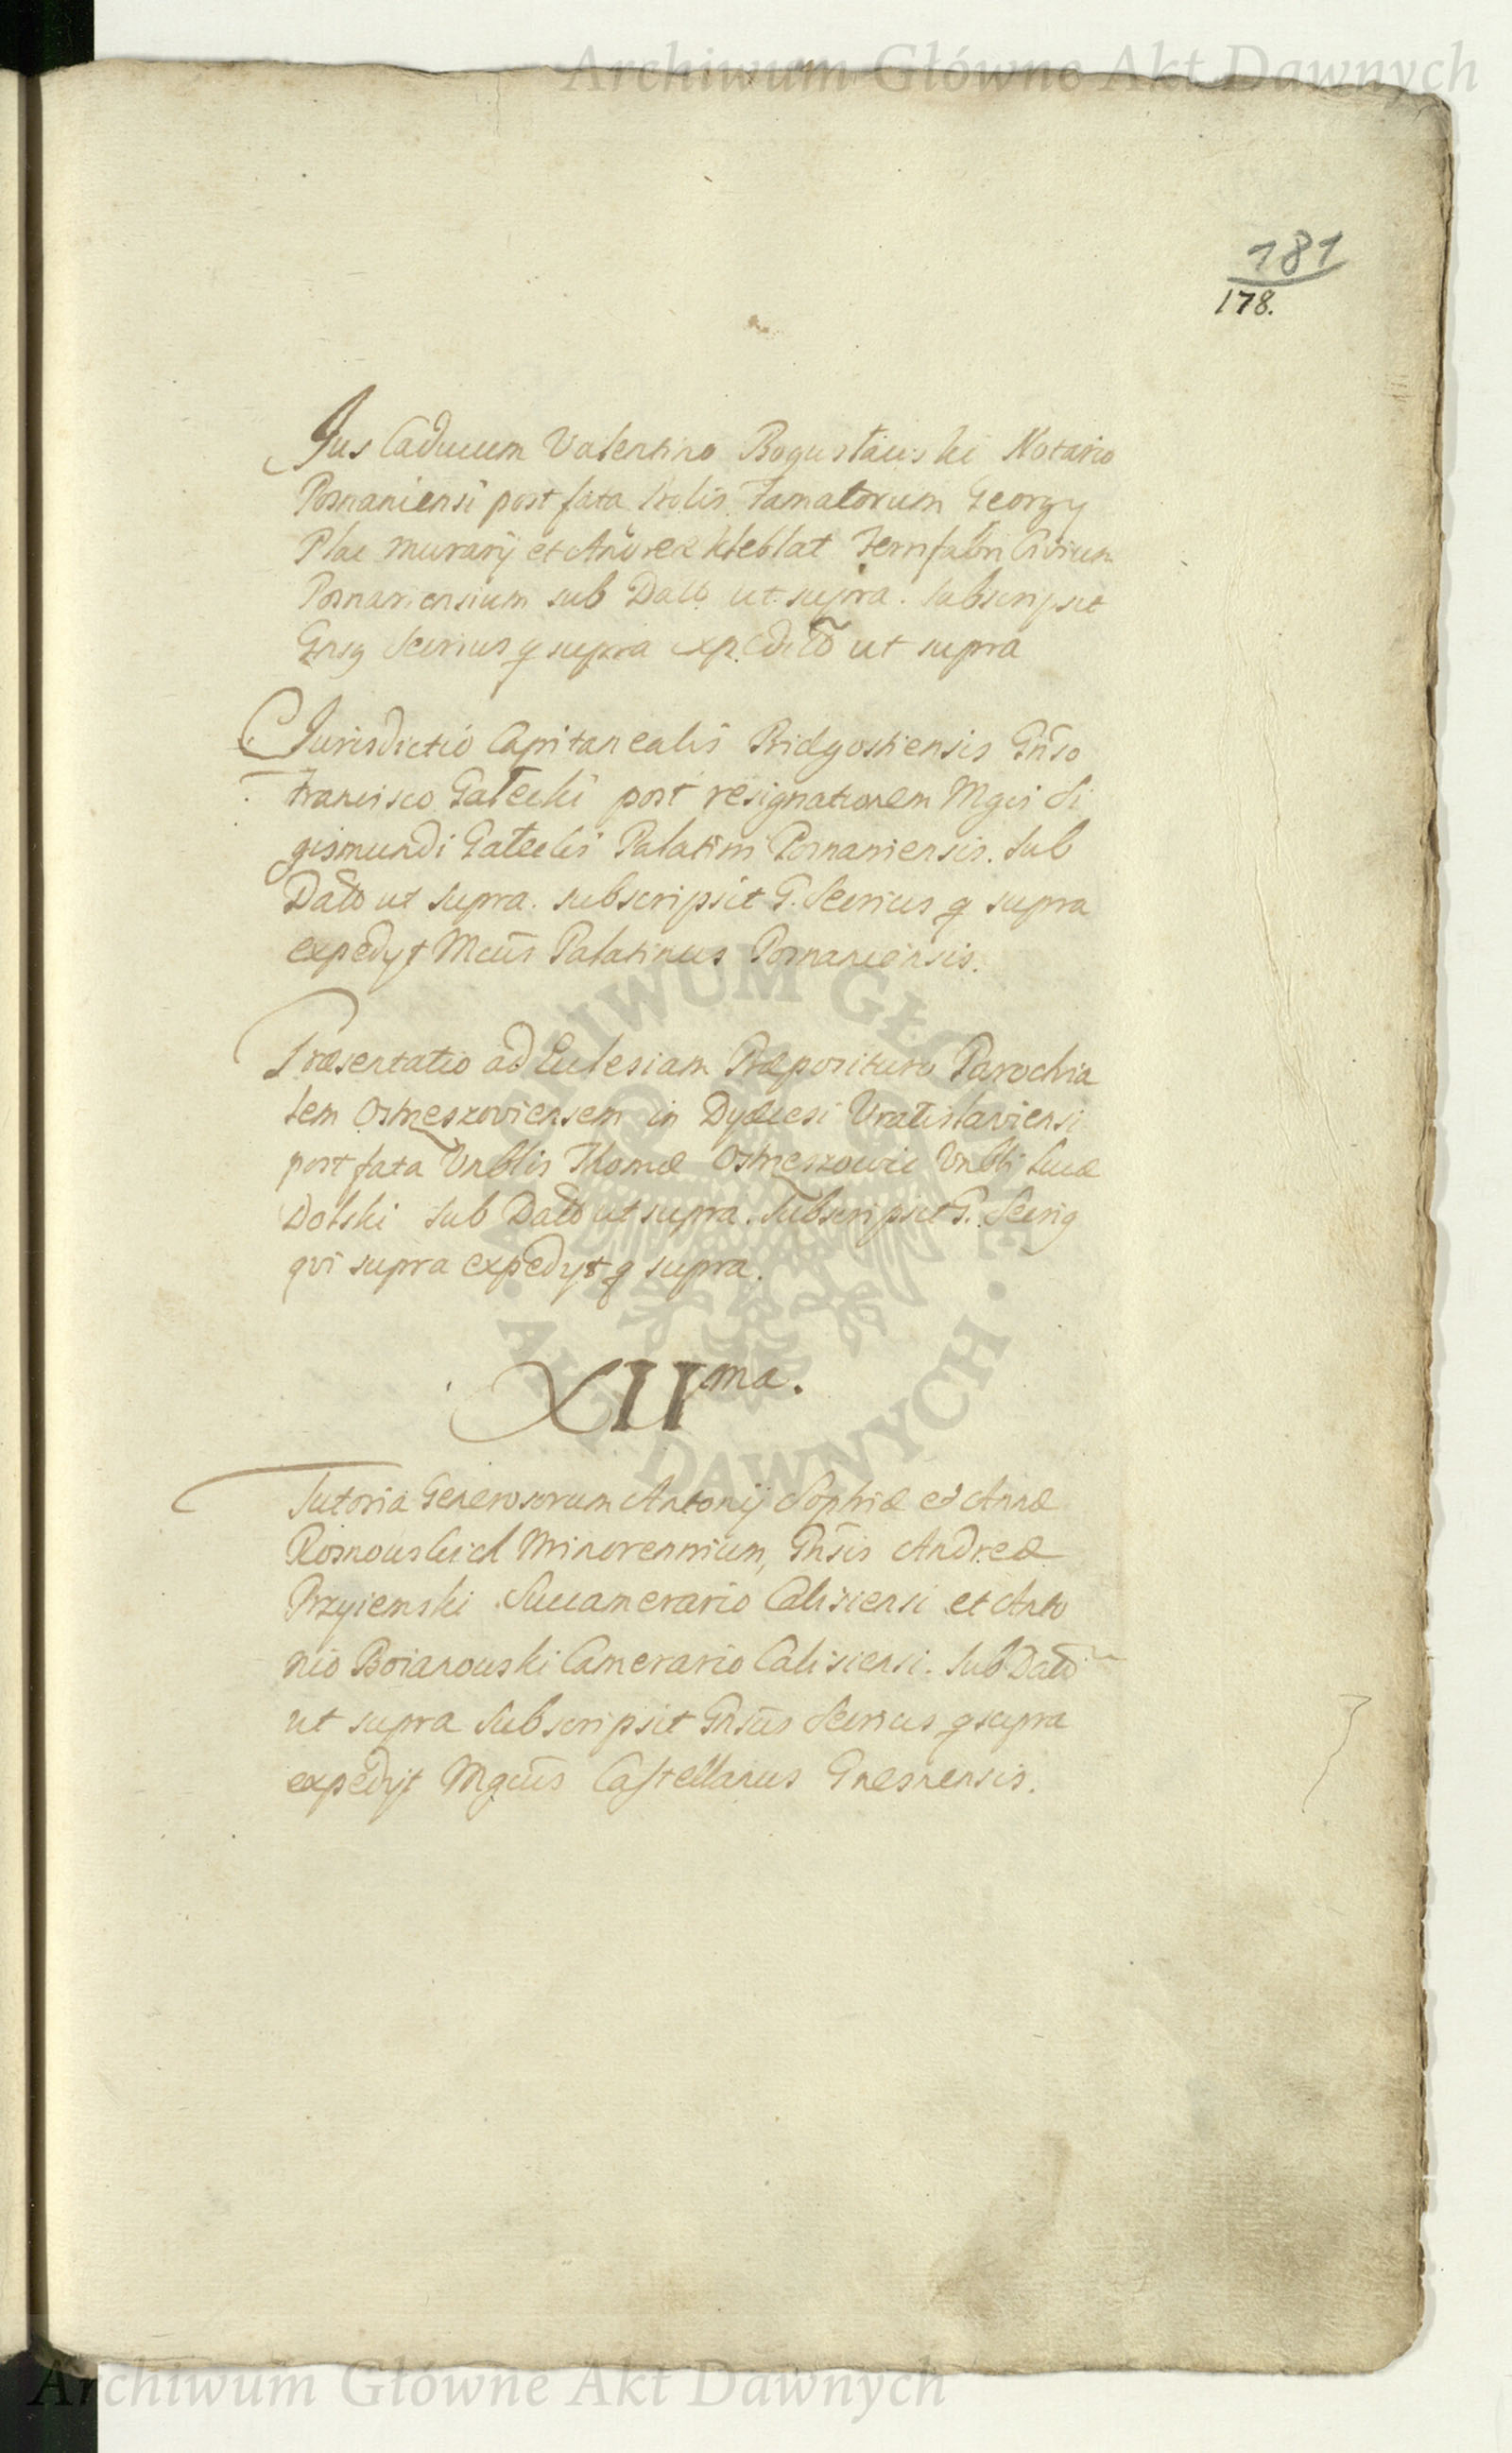 Archiwum Główne Akt Dawnych
181
178.
Jus Caducum Valentino Bogusławski Notario
Posnaniensi post fata Famatorum Georgy
Plac murarij et Andreæ Kleblat Ferrifabri Civium
Posnaniensium sub Datō ut supra. Subscripsit
Gnsg Secrius q supra expeditō ut supra
Jurisdictio Capitanealis Bidgostiensis Gnso
Francisco Gałecki post resignationem Mgci Si
gismundi Gałecki Palatini Posnaniensis. Sub
Datō ut supra. subscripsit G. Secrius q supra
expedyt Mcus Palatinus Posnaniensis.
Præsentatio ad Eclesiam Præpositura Parochia
lem Ostrzeszoviensem in Dyæcesi Vratislaviensi
post fata Vnblis Thomæ Vnbli Lucæ
Dolski sub Datō ut supra. Subscripsit G. Secrig
qui supra expedyt q supra.
XII ma.
Tutoria Generosorum Antonij Sophiæ et Annæ
Rosnouskich Minorennium, Gnsis Andreæ
Przyiemski Succamerario Calisiensi et Anto
nio Boianouski Camerario Calisiensi. Sub Datō
ut supra Subscripsit Gnsus Secrius q supra
expedyt Mgcus Castellanus Gnesnensis.
ARCHIWUM GŁÓWNE
AKT DAWNYCH
Archiwum Główne Akt Dawnych